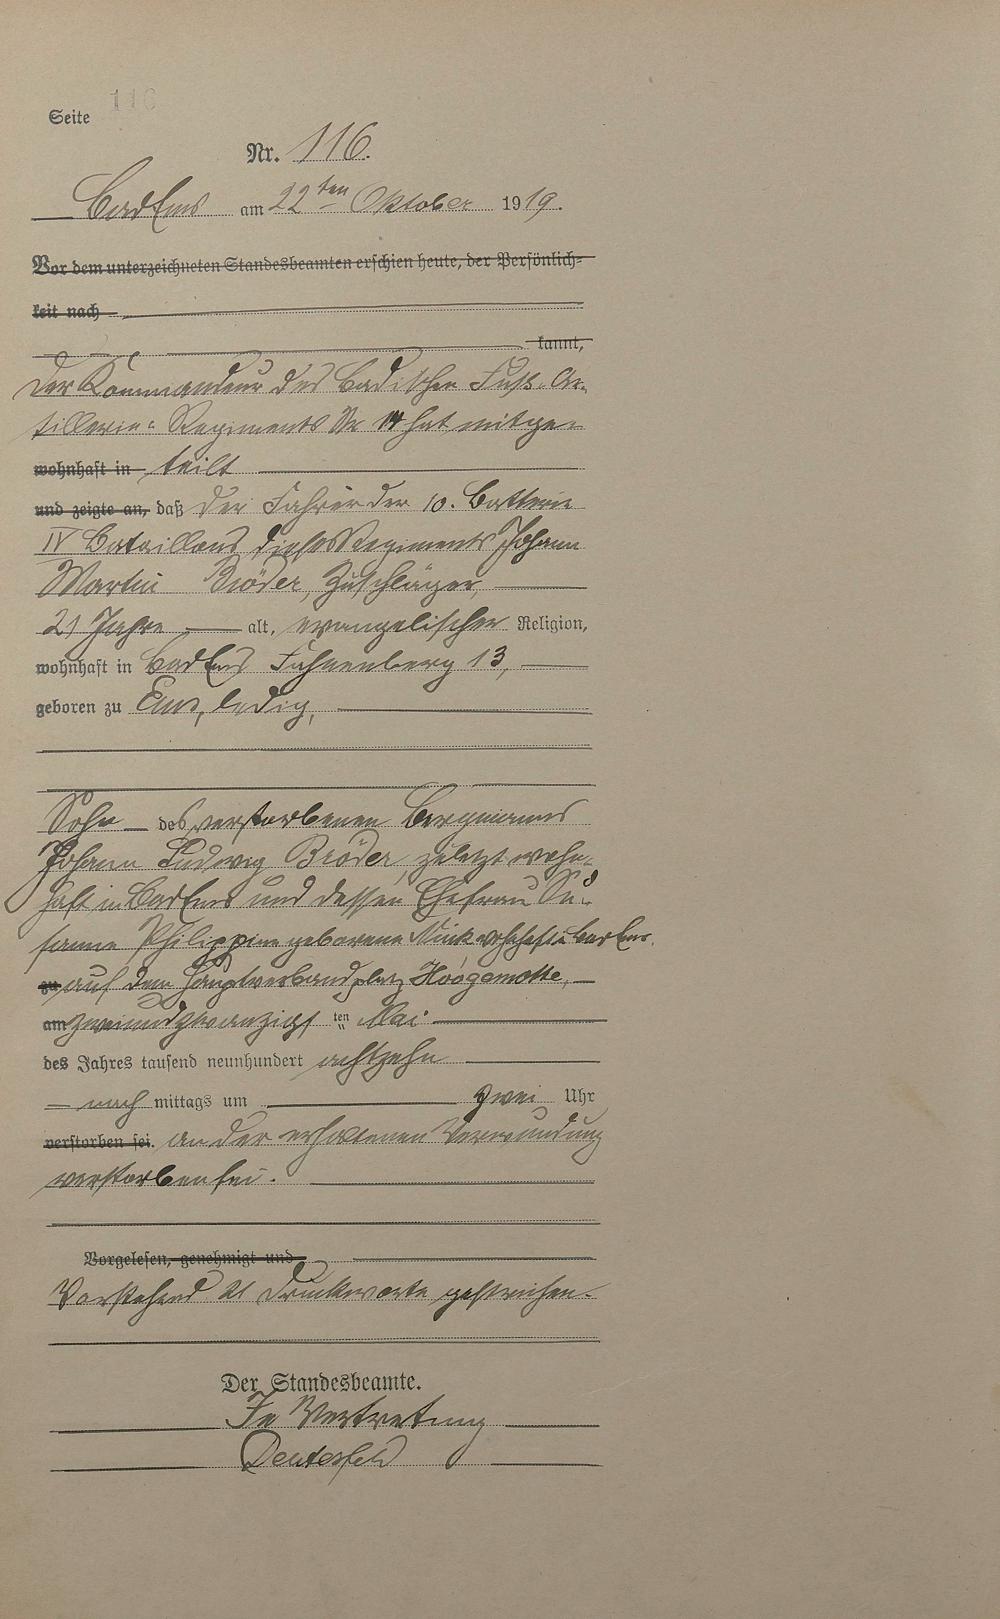 Seite 116
Nr. 116.
Bad Ems am 22ten Oktober 1919.
Vor dem unterzeichneten Standesbeamten erschien heute, der Persönlich=
keit nach
kannt,
Der Kommandeur des Badischen Fuß-Ar-
tillerie-Regiments Nr. 14 hat mitge-
wohnhaft in teilt
und zeigte an, daß der Fahrer der 10. Batterie
IV Bataillons dieses Regiments Johann
Martin Bröder, Zuschläger,
21 Jahre alt, evangelischer Religion,
wohnhaft in Bad Ems 13,
geboren zu Ems, ledig,
Sohn des verstorbenen Bergmanns
Johann Ludwig Bröder, zuletzt wohn-
haft in Bad Ems und dessen Ehefrau Su-
sanna Philippine geborene wohnhaft in Bad Ems.
zu auf dem Hauptverbandplatz Hoogemotte,
am zweiundzwanzigsten Mai
des Jahres tausend neunhundert achtzehn
nach mittags um zwei Uhr
verstorben sei. an der erhaltenen Verwundung
verstorben sei.
Vorgelesen, genehmigt und
Vorstehend 21 Druckworte gestrichen.
Der Standesbeamte.
In Vertretung